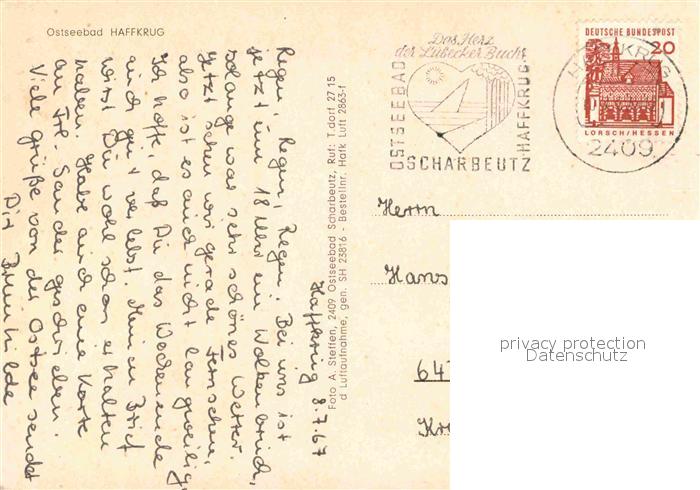 Ostseebad HAFFKRUG
Haffkrug 8.7.67
Regen, Regen, Regen! Bei uns ist
jetzt um 18 Uhr ein Wolkenbruch,
solange war sehr schönes Wetter.
Jetzt sehen wir gerade Fernsehen,
also ist es auch nicht langweilig.
Ich hoffe, daß Du das Wochenende
auch gut verlebst. Mein en Brief
wirst Du wohl schon erhalten
haben. Habe auch eine Karte
an Frl. Sander geschrieben.
Viele Grüße von der Ostsee sendet
Dir Brunhilde
Foto A. Steffen, 2409 Ostseebad Scharbeutz, Ruf: T.dorf 27 15
d Luftaufnahme, gen. SH 23816 - Bestellnr. Hafk Luft 2863-f
Das Herz
der Lübecker Bucht
OSTSEEBAD
HAFFKRUG-
SCHARBEUTZ
HAFFKRUG
2409
DEUTSCHE BUNDESPOST
20
LORSCH/HESSEN
Herrn
Hans
647
Kre
privacy protection
Datenschutz